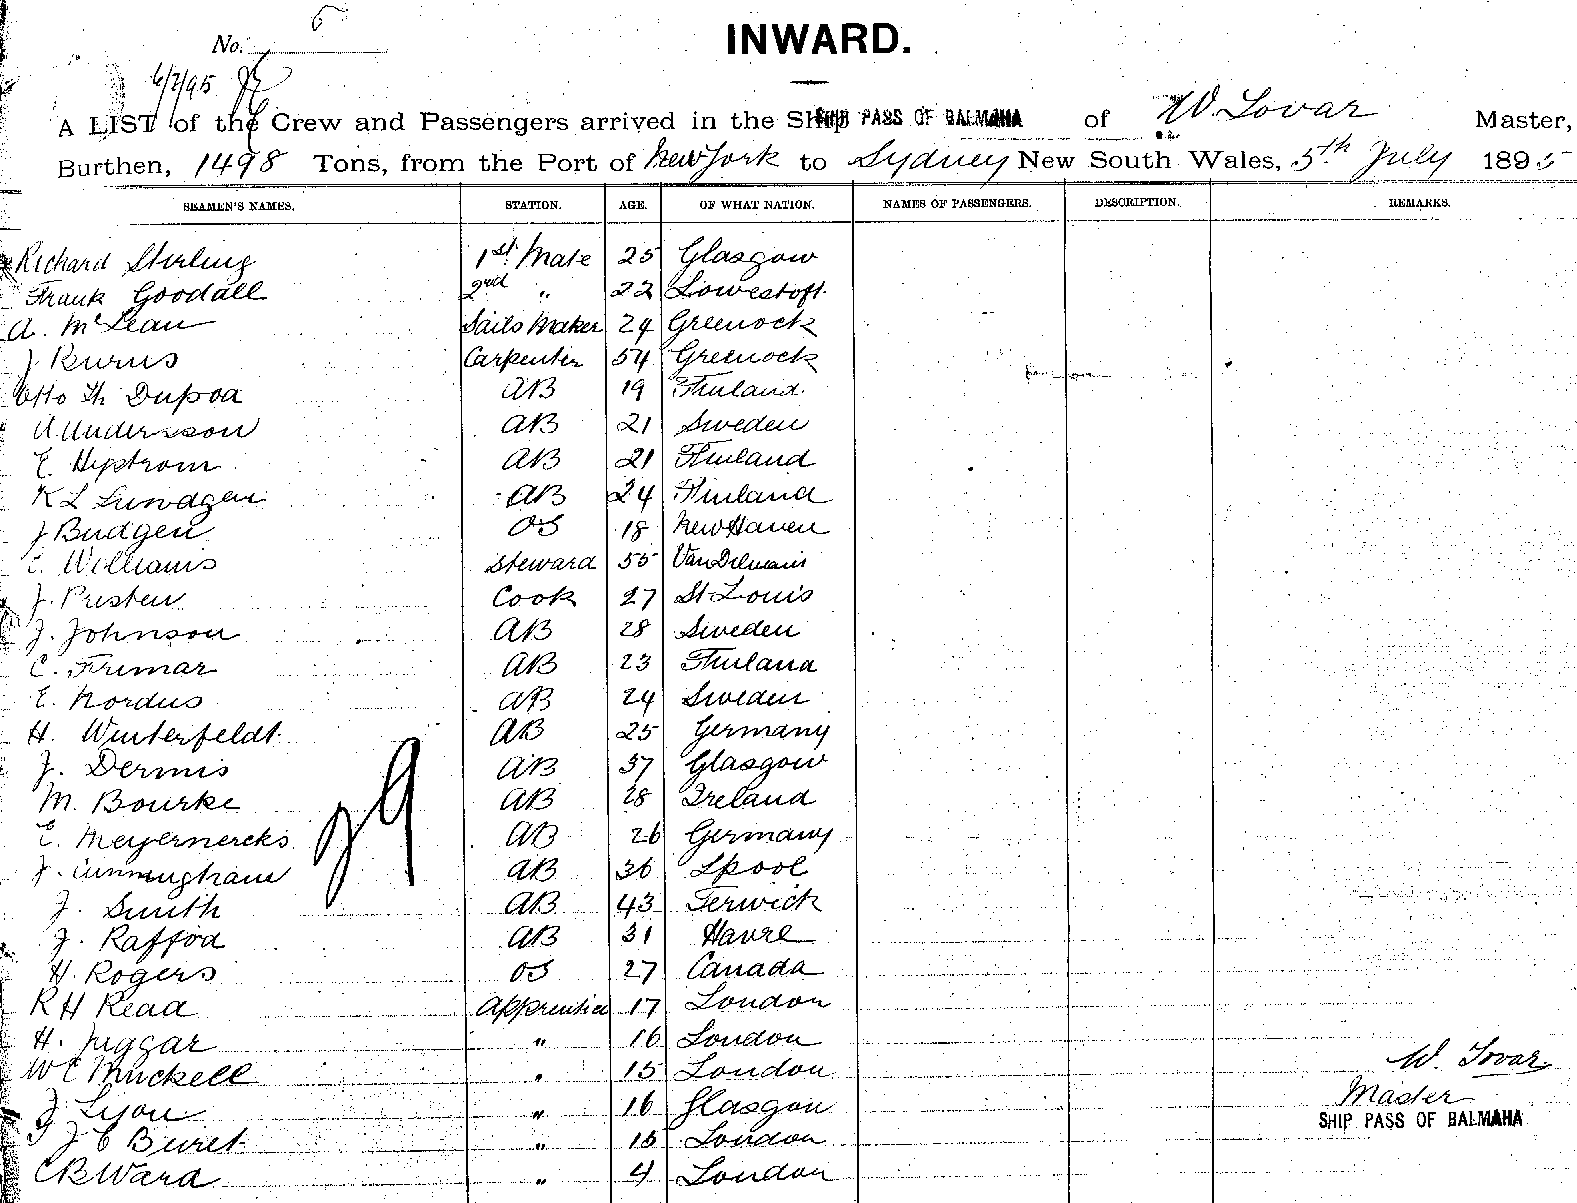 No. 5
INWARD.
6/7/95
A LIST of the Crew and Passengers arrived in the Ship SHIP PASS OF BALMAHA of W. Lovar Master,
Burthen, 1498 Tons, from the Port of New York to Sydney New South Wales, 5th July 1895
SEAMEN'S NAMES. STATION. AGE. OF WHAT NATION. NAMES OF PASSENGERS. DESCRIPTION. REMARKS.
Richard Stirling 1st Mate 25 Glasgow
Frank Goodall 2nd " 22 Lowestoft
A. McLean Sails Maker 24 Greenock
J Carpenter 54 Greenock
Otto Th Dupoa AB 19 Finland
A Andersson AB 21 Sweden
E AB 21 Finland
K L Lundgen AB 24 Finland
J Budgen OS 18 New Haven
Williams Steward 55 Van Diemans
J. Presten Cook 27 St Louis
J. Johnson AB 28 Sweden
C. Frimar AB 23 Finland
E. Nordus AB 24 Sweden
H. Winterfeldt AB 25 Germany
J. Dermis AB 37 Glasgow
M. Bourke AB 28 Ireland
E. Meyernercks AB 26 Germany
J. Cunningham AB 36 Lpool
J. Smith AB 43 Lerwick
J. Rafford AB 31 Havre
H. Rogers OS 27 Canada
R H Read Apprentice 17 London
H. Juggar " 16 London
W C Muckell " 15 London
J Lyon " 16 Glasgow
J C Buret " 15 London
C B Ward " 4 London
W. Lovar
Master
SHIP PASS OF BALMAHA